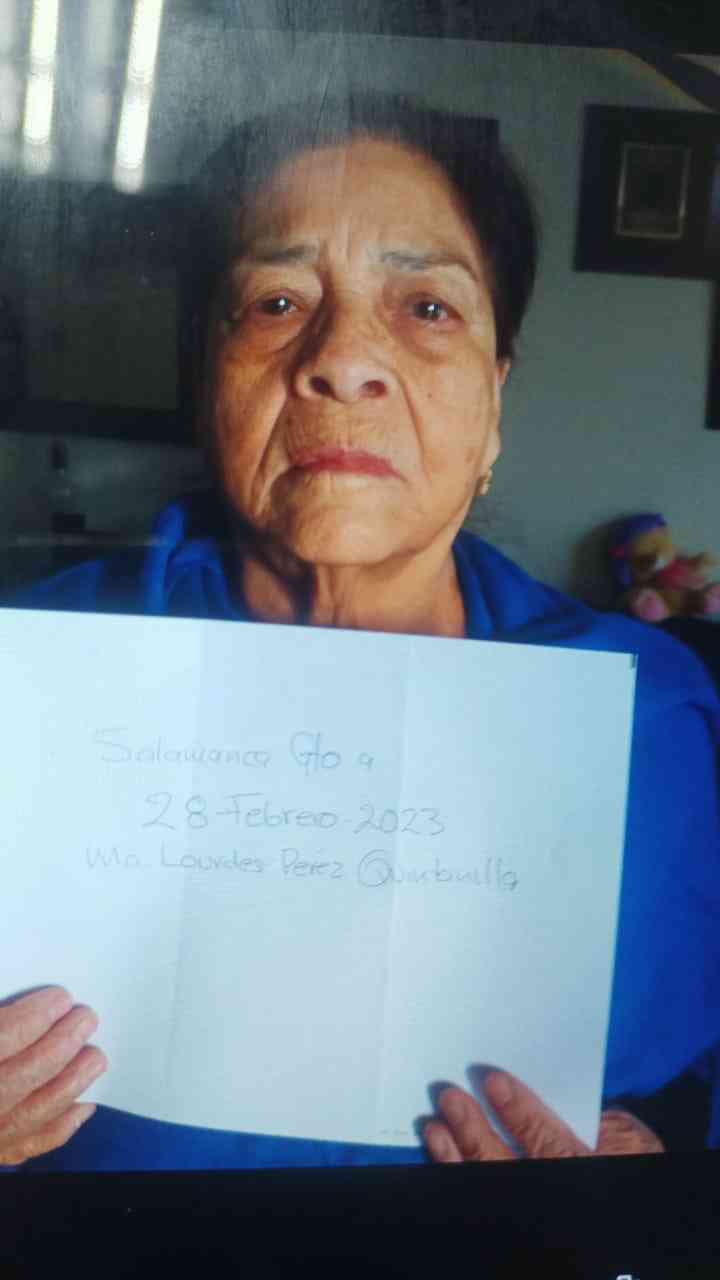 Salamanca Gto a
28-Febrero-2023
Ma. Lourdes Perez Quintanilla